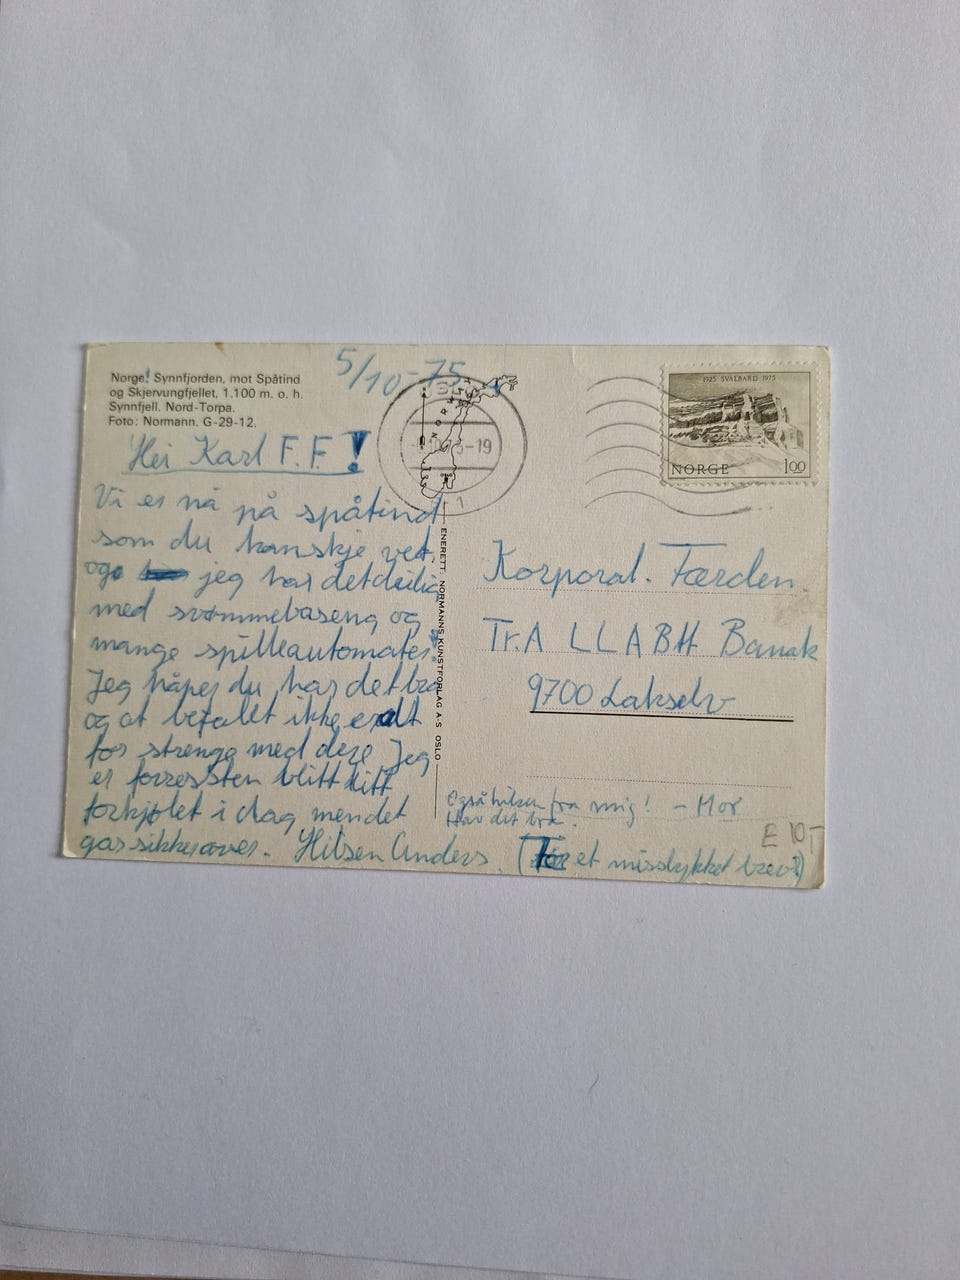 Norge! Synnfjorden, mot Spåtind
og Skjervungfjellet, 1.100 m. o. h.
Synnfjell. Nord-Torpa.
Foto: Normann. G-29-12.
5/10-75
Hei Karl F. F!
Vi er nå på spåtind
som du kanskje vet.
og jeg har det deilig
med svømmebaseng og
mange spilleautomater.
Jeg håper du har det bra
og at befalet ikke er alt
for strenge med dere Jeg
er forresten blitt litt
forkjølet i dag men det
gar sikkert over. Hilsen Anders. ( et misslykket brev!)
ENERETT: NORMANNS KUNSTFORLAG A-S OSLO
NORNE
75-19
1
1925 SVALBARD 1975
NORGE 100
Korporal. Færden.
Tr.A LLABH Banak
9700 Lakselv
Også hilsen fra mig! - Mor
Hav det bra.
E 10,-